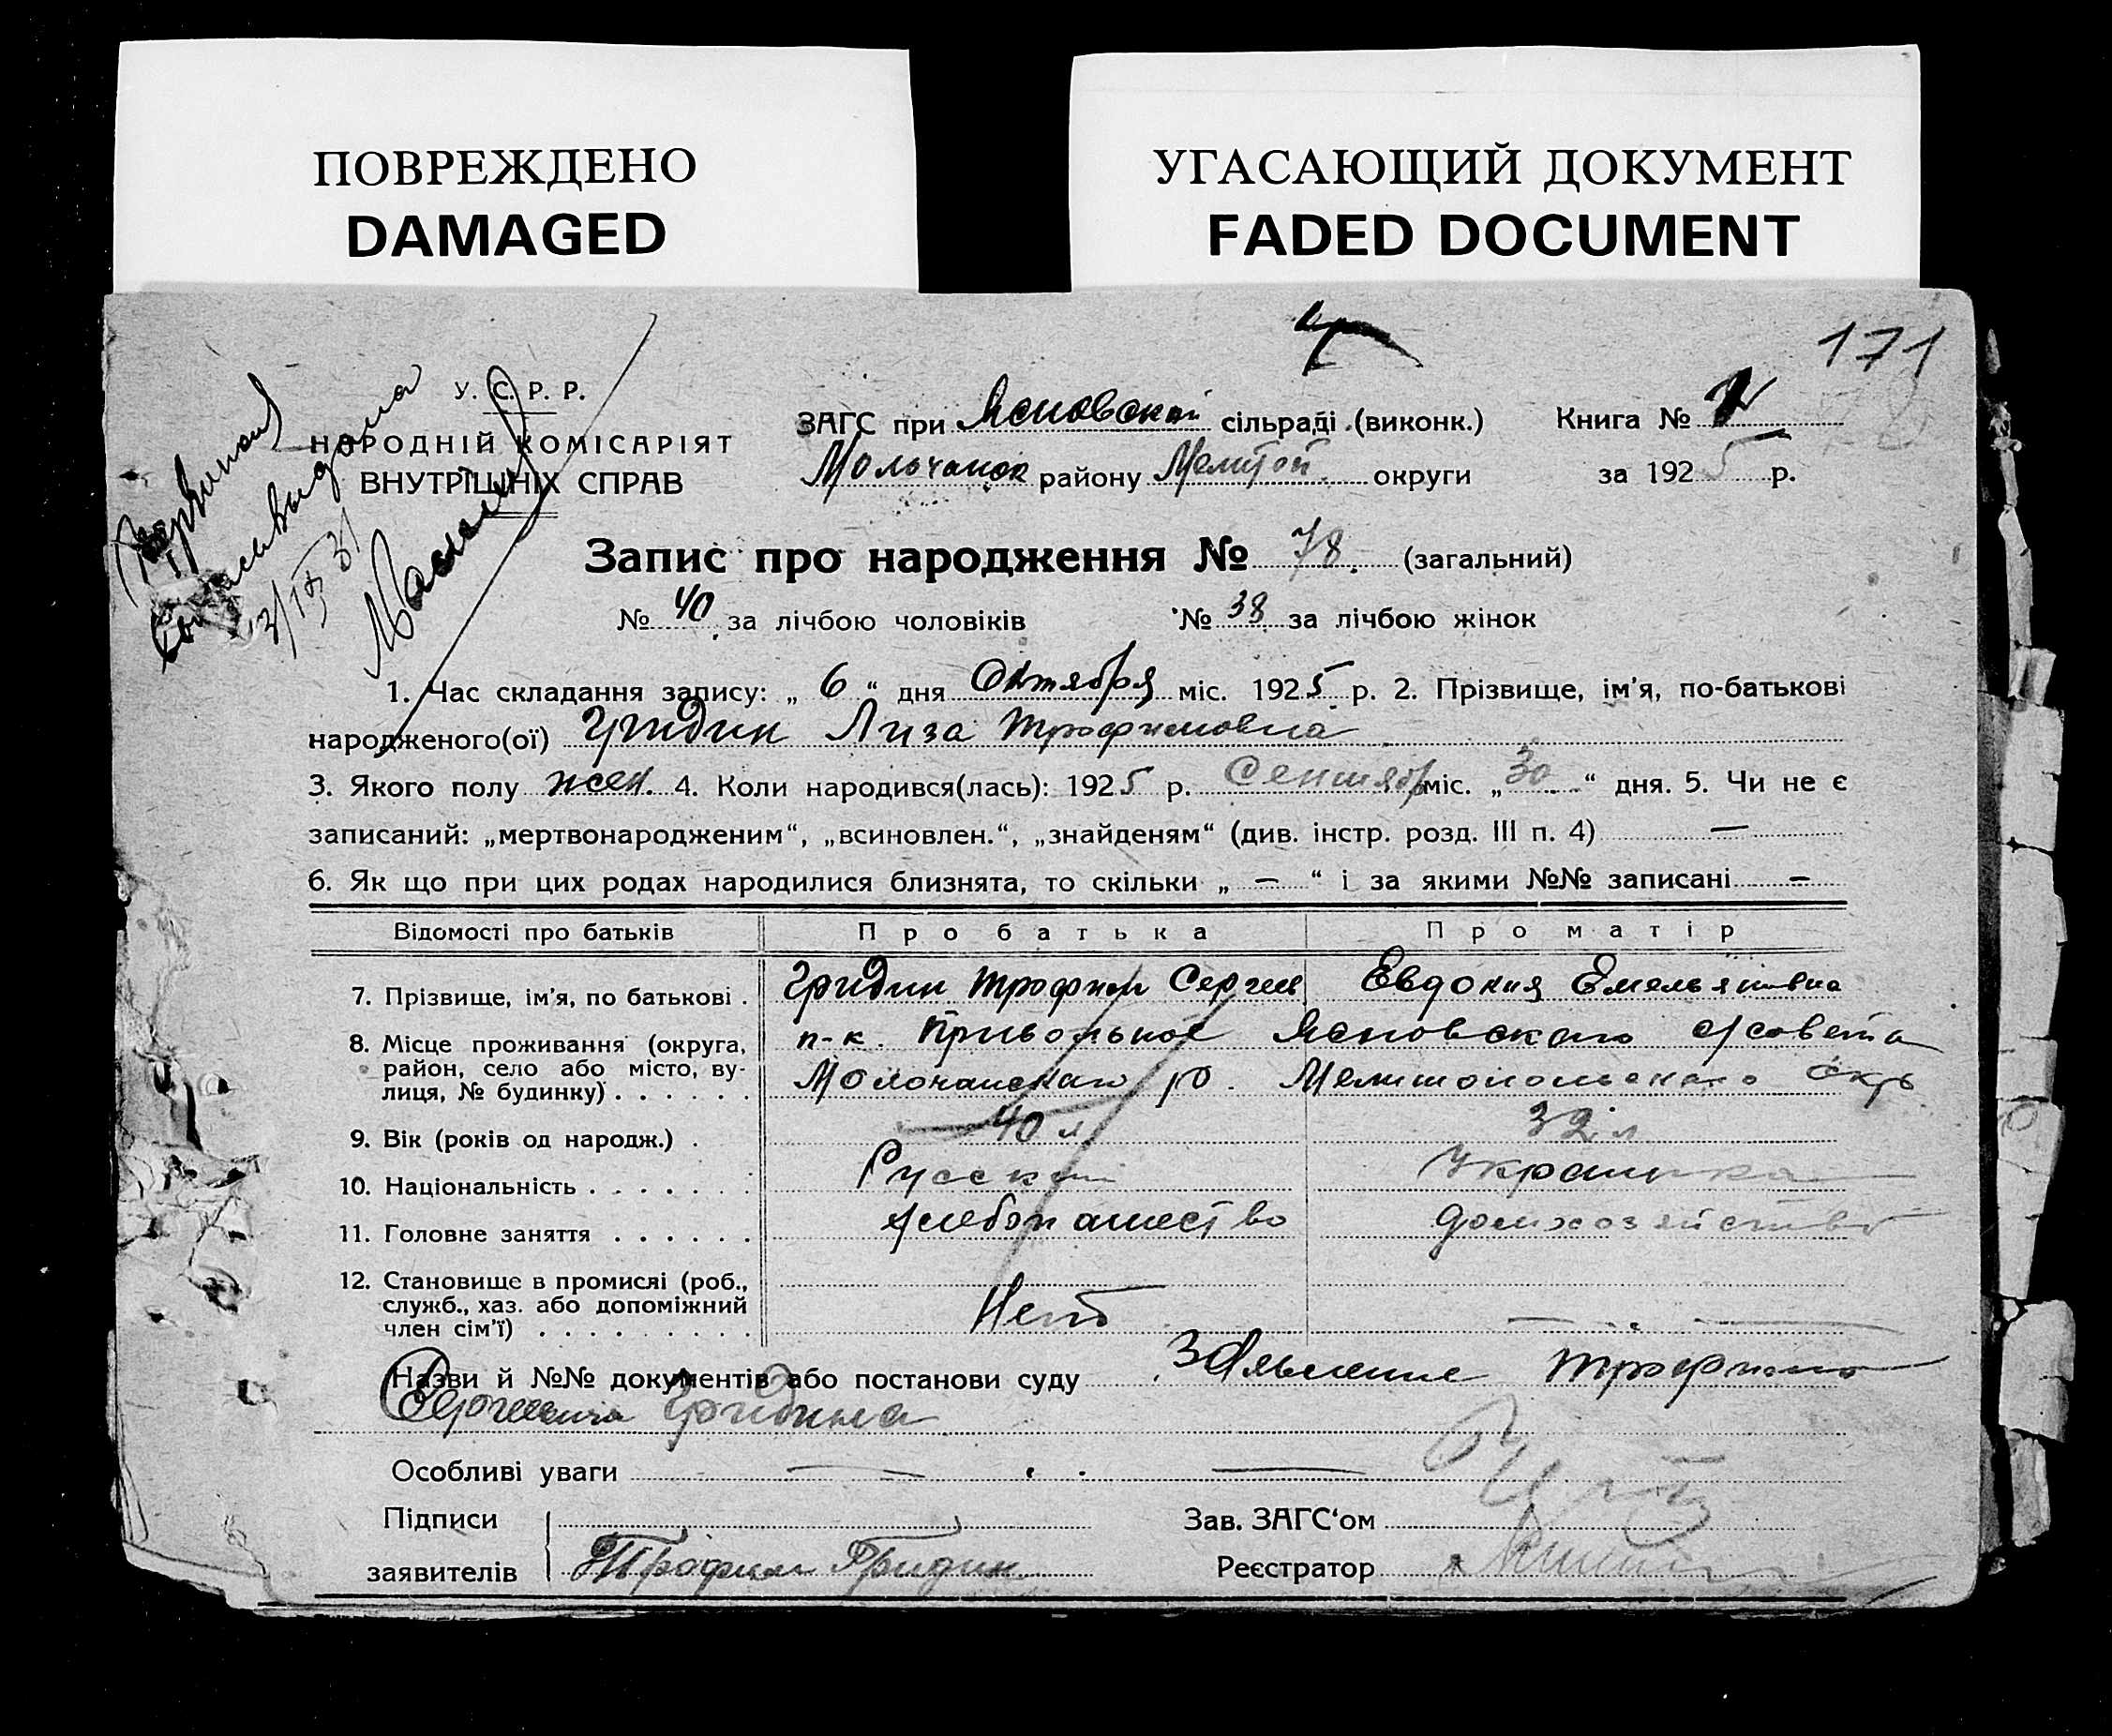 ПОВРЕЖДЕНО
DAMAGED
УГАСАЮЩИЙ ДОКУМЕНТ
FADED DOCUMENT
171
У. С. Р. Р.
НАРОДНІЙ КОМІСАРІЯТ
ВНУТРІШНІХ СПРАВ
ЗАГС при Ясновской сільраді (виконк.) Книга №
Молочанск району Мелитоп. округи за 1925 р.
Запис про народження № 78. (загальний)
№ 40 за лічбою чоловіків № 38 за лічбою жінок
1. Час складання запису: „ 6 “ дня Октября міс. 1925 р. 2. Прізвище, ім'я, по-батькові
народженого(ої) Гридин Лиза Трофимовна
3. Якого полу жен. 4. Коли народився(лась): 1925 р. Сентябр міс. „ 30 “ дня. 5. Чи не є
записаний: „мертвонародженим“, „всиновлен.“, „знайденям“ (див. інстр. розд. III п. 4) —
6. Як що при цих родах народилися близнята, то скільки „ — “ і за якими №№ записані —
Відомості про батьків Про батька Про матір
7. Прізвище, ім'я, по батькові . Гридин Трофим Сергеев Евдокия Емельяновна
8. Місце проживання (округа, район, село або місто, вулиця, № будинку) . . . . . . п-к. Привольное Ясновского с/совета
Молочанского р. Мелитопольского окр
9. Вік (років од народж.) . 40 л 32 л
10. Національність . . . . . . . Русский Украинка
11. Головне заняття . . . . . . хлебопашество домхозяйство
12. Становище в промислі (роб., служб., хаз. або допоміжний член сім'ї) . . . . . . . . . Нет
Назви й №№ документів або постанови суду Заявление Трофима
Сергеевича Гридина
Особливі уваги — —
Підписи Зав. ЗАГС‘ом
заявителів Трофим Гридин Реєстратор